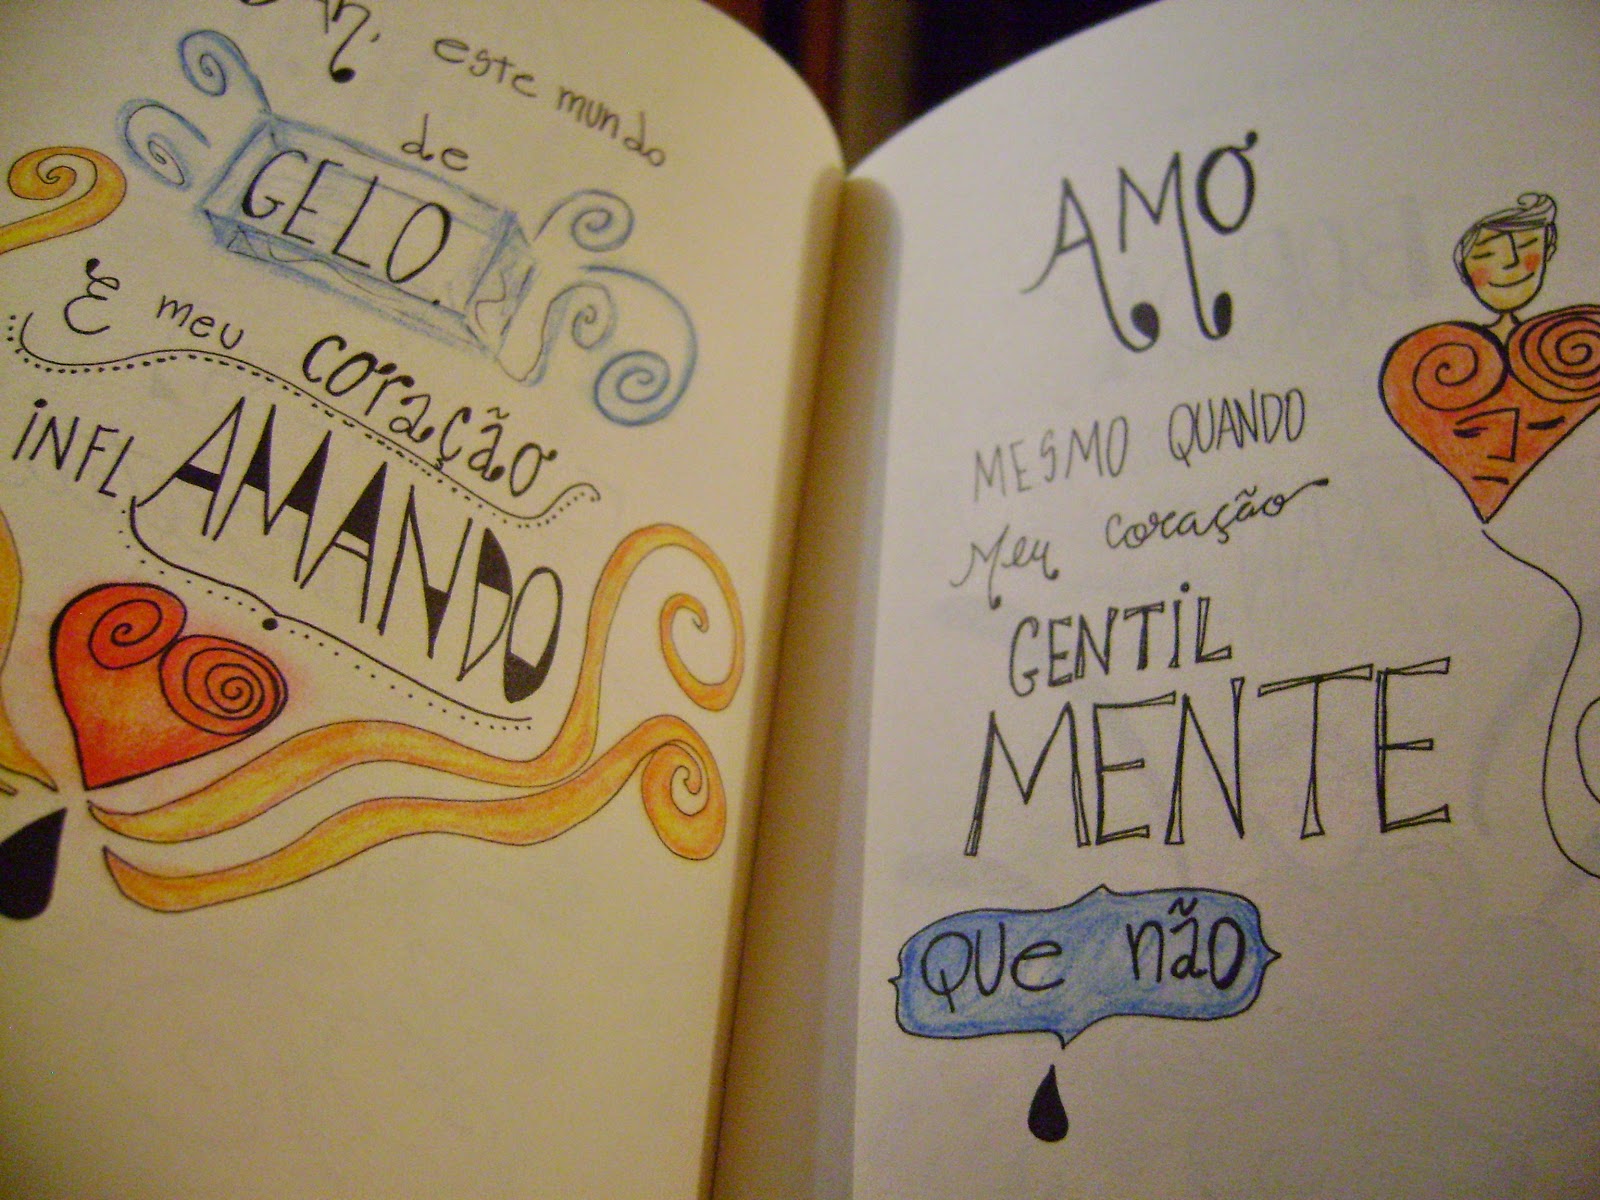 este mundo
de
GELO.
E meu coração
INFLAMANDO
AMO
MESMO QUANDO
Meu coração
GENTIL
MENTE
QUe não